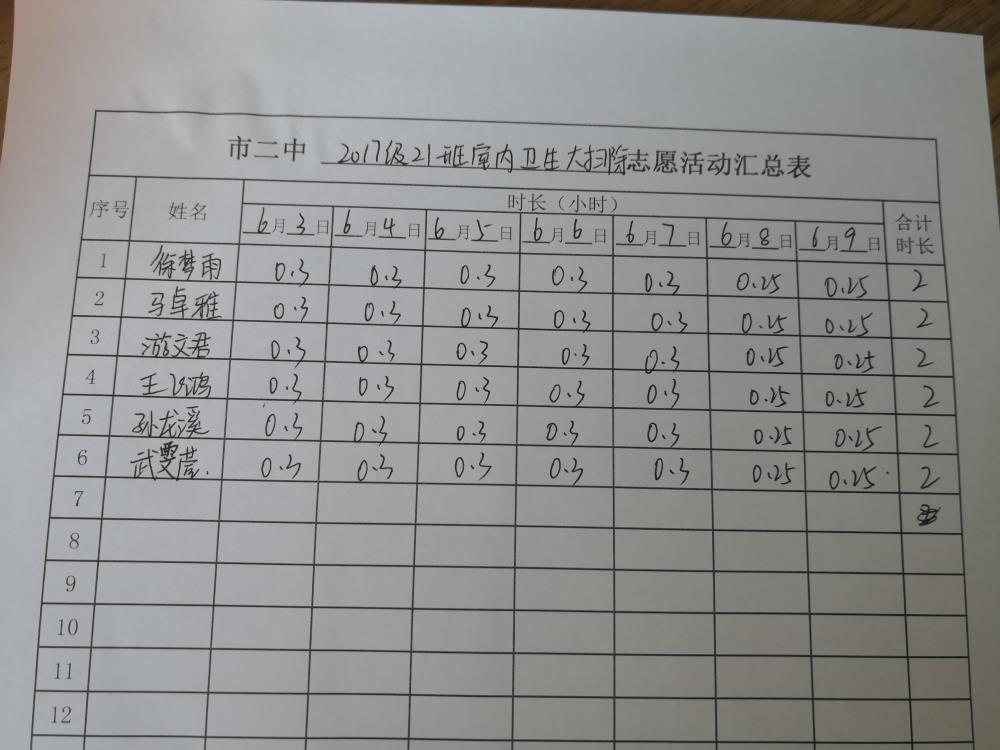 市二中 2017级21班室内卫生大扫除志愿活动汇总表
序号 姓名 时长（小时） 合计时长
6月3日 6月4日 6月5日 6月6日 6月7日 6月8日 6月9日
1 徐梦雨 0.3 0.3 0.3 0.3 0.3 0.25 0.25 2
2 马卓雅 0.3 0.3 0.3 0.3 0.3 0.25 0.25 2
3 游文君 0.3 0.3 0.3 0.3 0.3 0.25 0.25 2
4 王飞鸿 0.3 0.3 0.3 0.3 0.3 0.25 0.25 2
5 孙龙溪 0.3 0.3 0.3 0.3 0.3 0.25 0.25 2
6 武雯 0.3 0.3 0.3 0.3 0.3 0.25 0.25 2
7
8
9
10
11
12